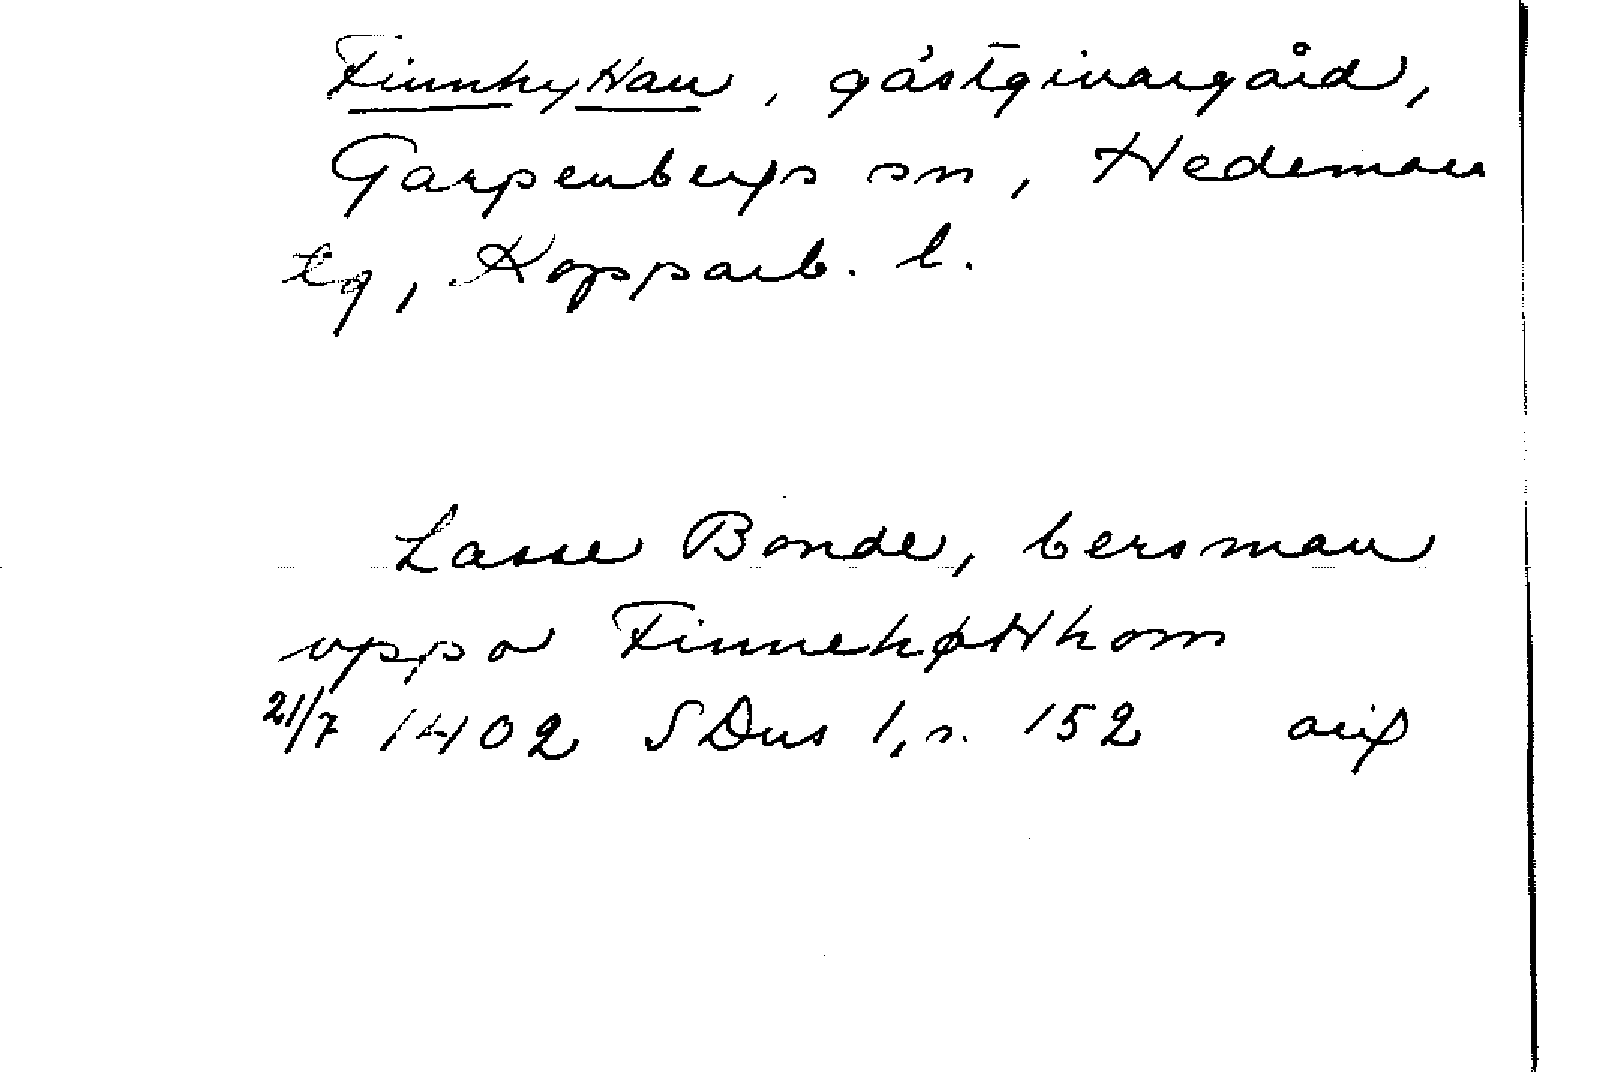 Finnhyttan, gästgivargård,
Garpenbergs sn, Hedemora
tg, Kopparb. l.
Lasse Bonde, bersman
uppa Finnehøtthom
21/7 1402 SDns 1, s. 152 orig